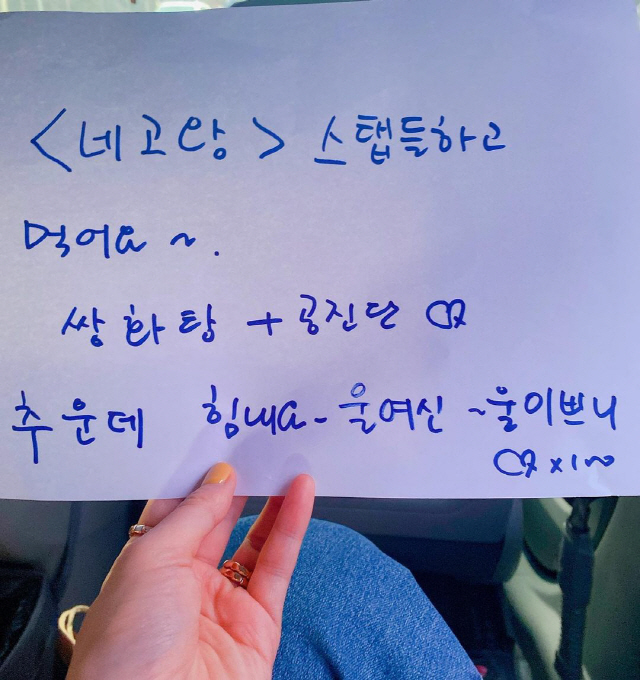 <네고왕> 스탭들하고
먹어요~.
쌍화탕 + 공진단 ♡
추운데 힘내요- 울여신 ~울이쁘니
♡ x 100